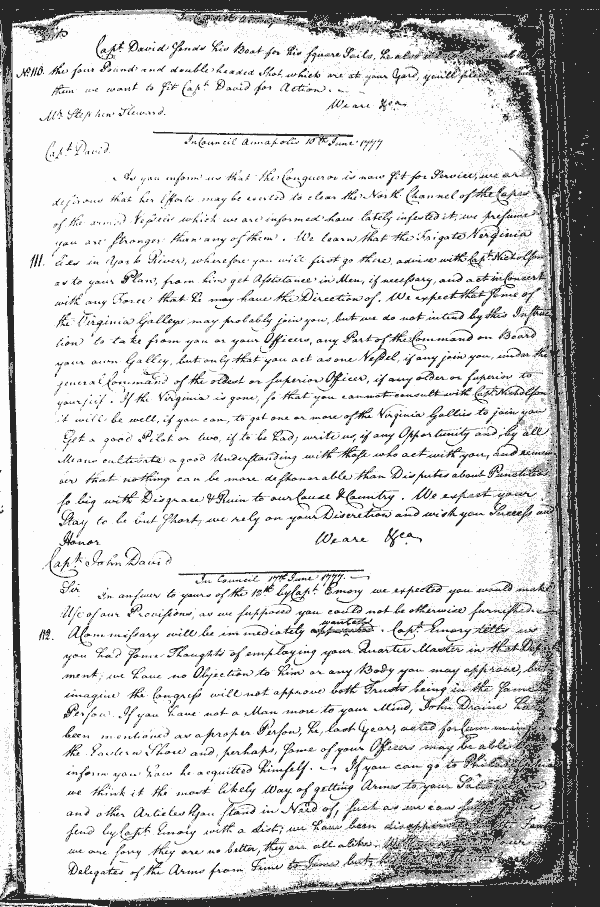 Sir
Capt. David sends his Boat for his Square Sails, he also
No. 110. the four Pound and double headed Shot, which are at your Yard, you'll
them we want to fit Capt. David for Action. We are &ca.
Mr. Stephen Steward.
In Council Annapolis 10th June 1777
Capt. David.
As you inform us that the Conqueror is now fit for Service, we are
desirous that her Efforts may be exerted to clear the North Channel of the Capes
of the armed Vessels which we are informed have lately infested it, we presume
you are stronger than any of them. We learn that the Frigate Virginia
111. lies in York River, wherefore you will first go there, advise with Capt. Nicholson
as to your Plan, from him get Assistance in Men, if necessary, and act in Concert
with any Force that he may have the Direction of. We expect that some of
the Virginia Gallies may probably join you, but we do not intend by this Instruc
tion to take from you or your Officers, any Part of the Command on Board
your own Galley, but only that you act as one Vessel, if any join you, under the
general Command of the oldest or Superior Officer, if any older or Superior to
yourself. If the Virginia is gone, so that you cannot consult with Capt. Nicholson
it will be well, if you can, to get one or more of the Virginia Gallies to join you
Got a good Pilot or two, if to be had, write us, if any Opportunity and, by all
Means cultivate a good Understanding with those who act with you, and remem
ber that nothing can be more dishonorable than Disputes about Punctilios
so big with Disgrace & Ruin to our Cause & Country. We expect your
Stay to be but Short, we rely on your Discretion and wish you Success and
Honor We are &ca
Capt. John David
In Council 17th June 1777.
Sir
In answer to yours of the 10th by Capt. Emory we expected you would make
Use of our Provisions, as we supposed you could not be otherwise furnished.
wanted
112. A Commissary will be immediately appointed. Capt. Emory tells us
you had some Thoughts of employing your Quarter Master in that Depart
ment; we have no Objection to him or any Body you may approve, but
imagine the Congress will not approve both Trusts being in the same
Person. If you have not a Man more to your Mind, John Draine has
been mentioned as a proper Person, he, last Year, acted for
the Eastern Shore and, perhaps, some of your Officers may be able to
inform you how he acquitted himself. If you can go to Philad
we think it the most likely Way of getting Arms to your
and other Articles you stand in Need of, such as we can
send by Capt. Emory with a list; we have been disappointed
we are sorry they are no better, they are all alike.
Delegates of the Arms from Time to Time, but